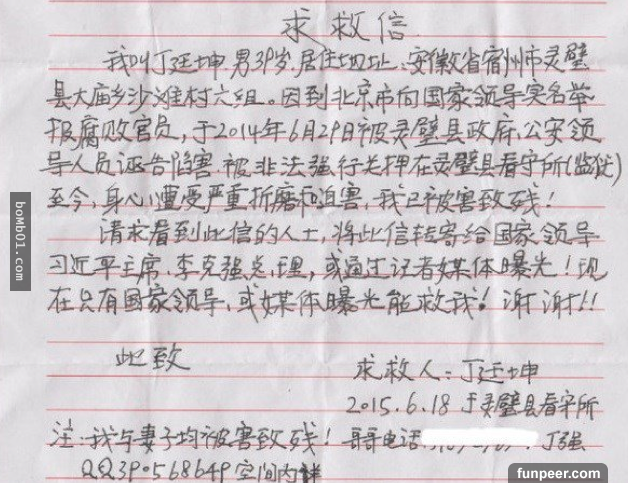 求救信
我叫丁廷坤,男39岁.居住地址:安徽省宿州市灵璧
县大庙乡沙滩村六组。因到北京市向国家领导实名举
报腐败官员,于2014年6月29日被灵璧县政府.公安领
导人员诬告陷害.被非法强行关押在灵璧县看守所(监狱)
至今,身心遭受严重折磨和迫害,我已被害致残!
请求看到此信的人士,将此信转寄给国家领导
习近平主席.李克强总理,或通过记者媒体曝光!现
在只有国家领导,或媒体曝光能救我!谢谢!!
此致
求救人:丁廷坤
2015.6.18于灵璧县看守所
注:我与妻子均被害致残!哥哥电话 丁强
QQ390568649空间内详
boMb01.com
funpeer.com